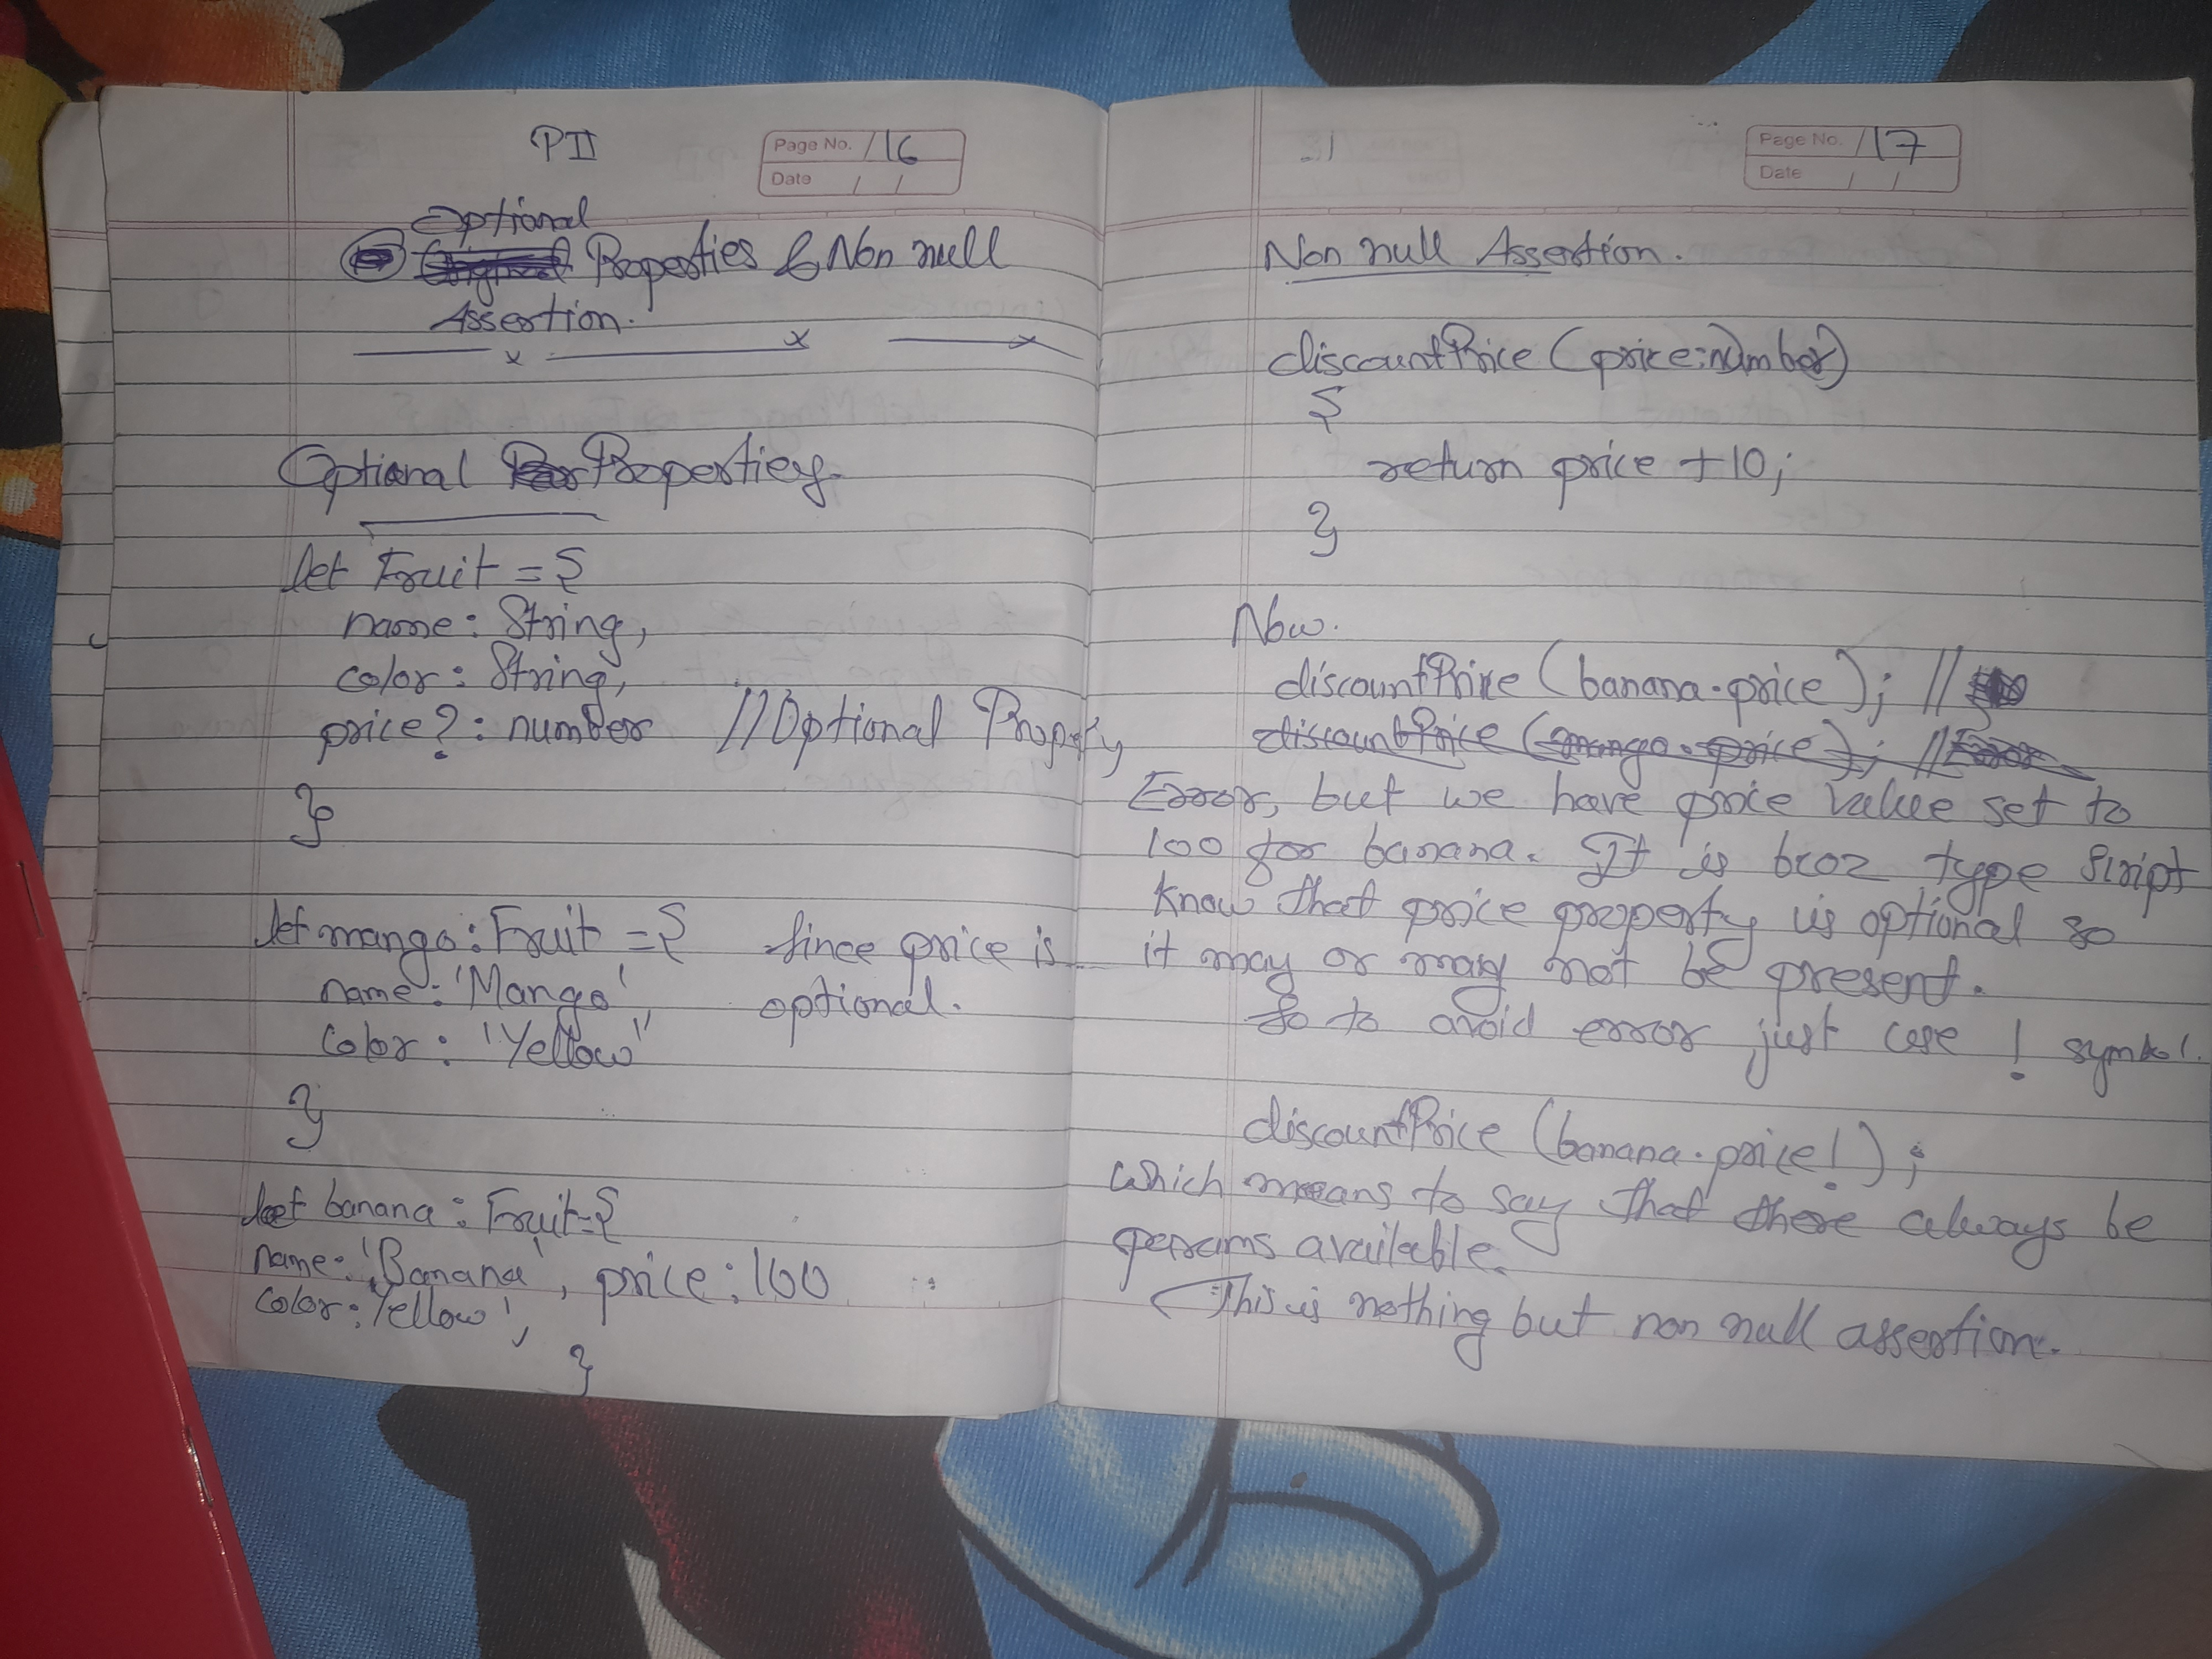 PII
Page No. 116
Date / /
Optional
Properties & Non null
Assertion.
Optional Properties.
let Fruit = {
name: String,
color: String,
price?: number //Optional Property
}
let mango: Fruit = { Since price is
name: 'Mango' optional.
color: "Yellow"
}
let banana: Fruit = {
name: 'Banana, price: 100
color: Yellow',
}
Page No. 117
Date / /
Non null Assertion.
discountPrice (price: number)
{
return price + 10;
}
Now.
discountPrice (banana.price); //
discountPrice (mango.price); // Error
Error, but we have price value set to
100 for banana. It is bcoz type Script
know that price property is optional so
it may or may not be present.
So to avoid error just use ! symbol.
discountPrice (banana.price!);
which means to say that there always be
persons available.
This is nothing but non null assertion.